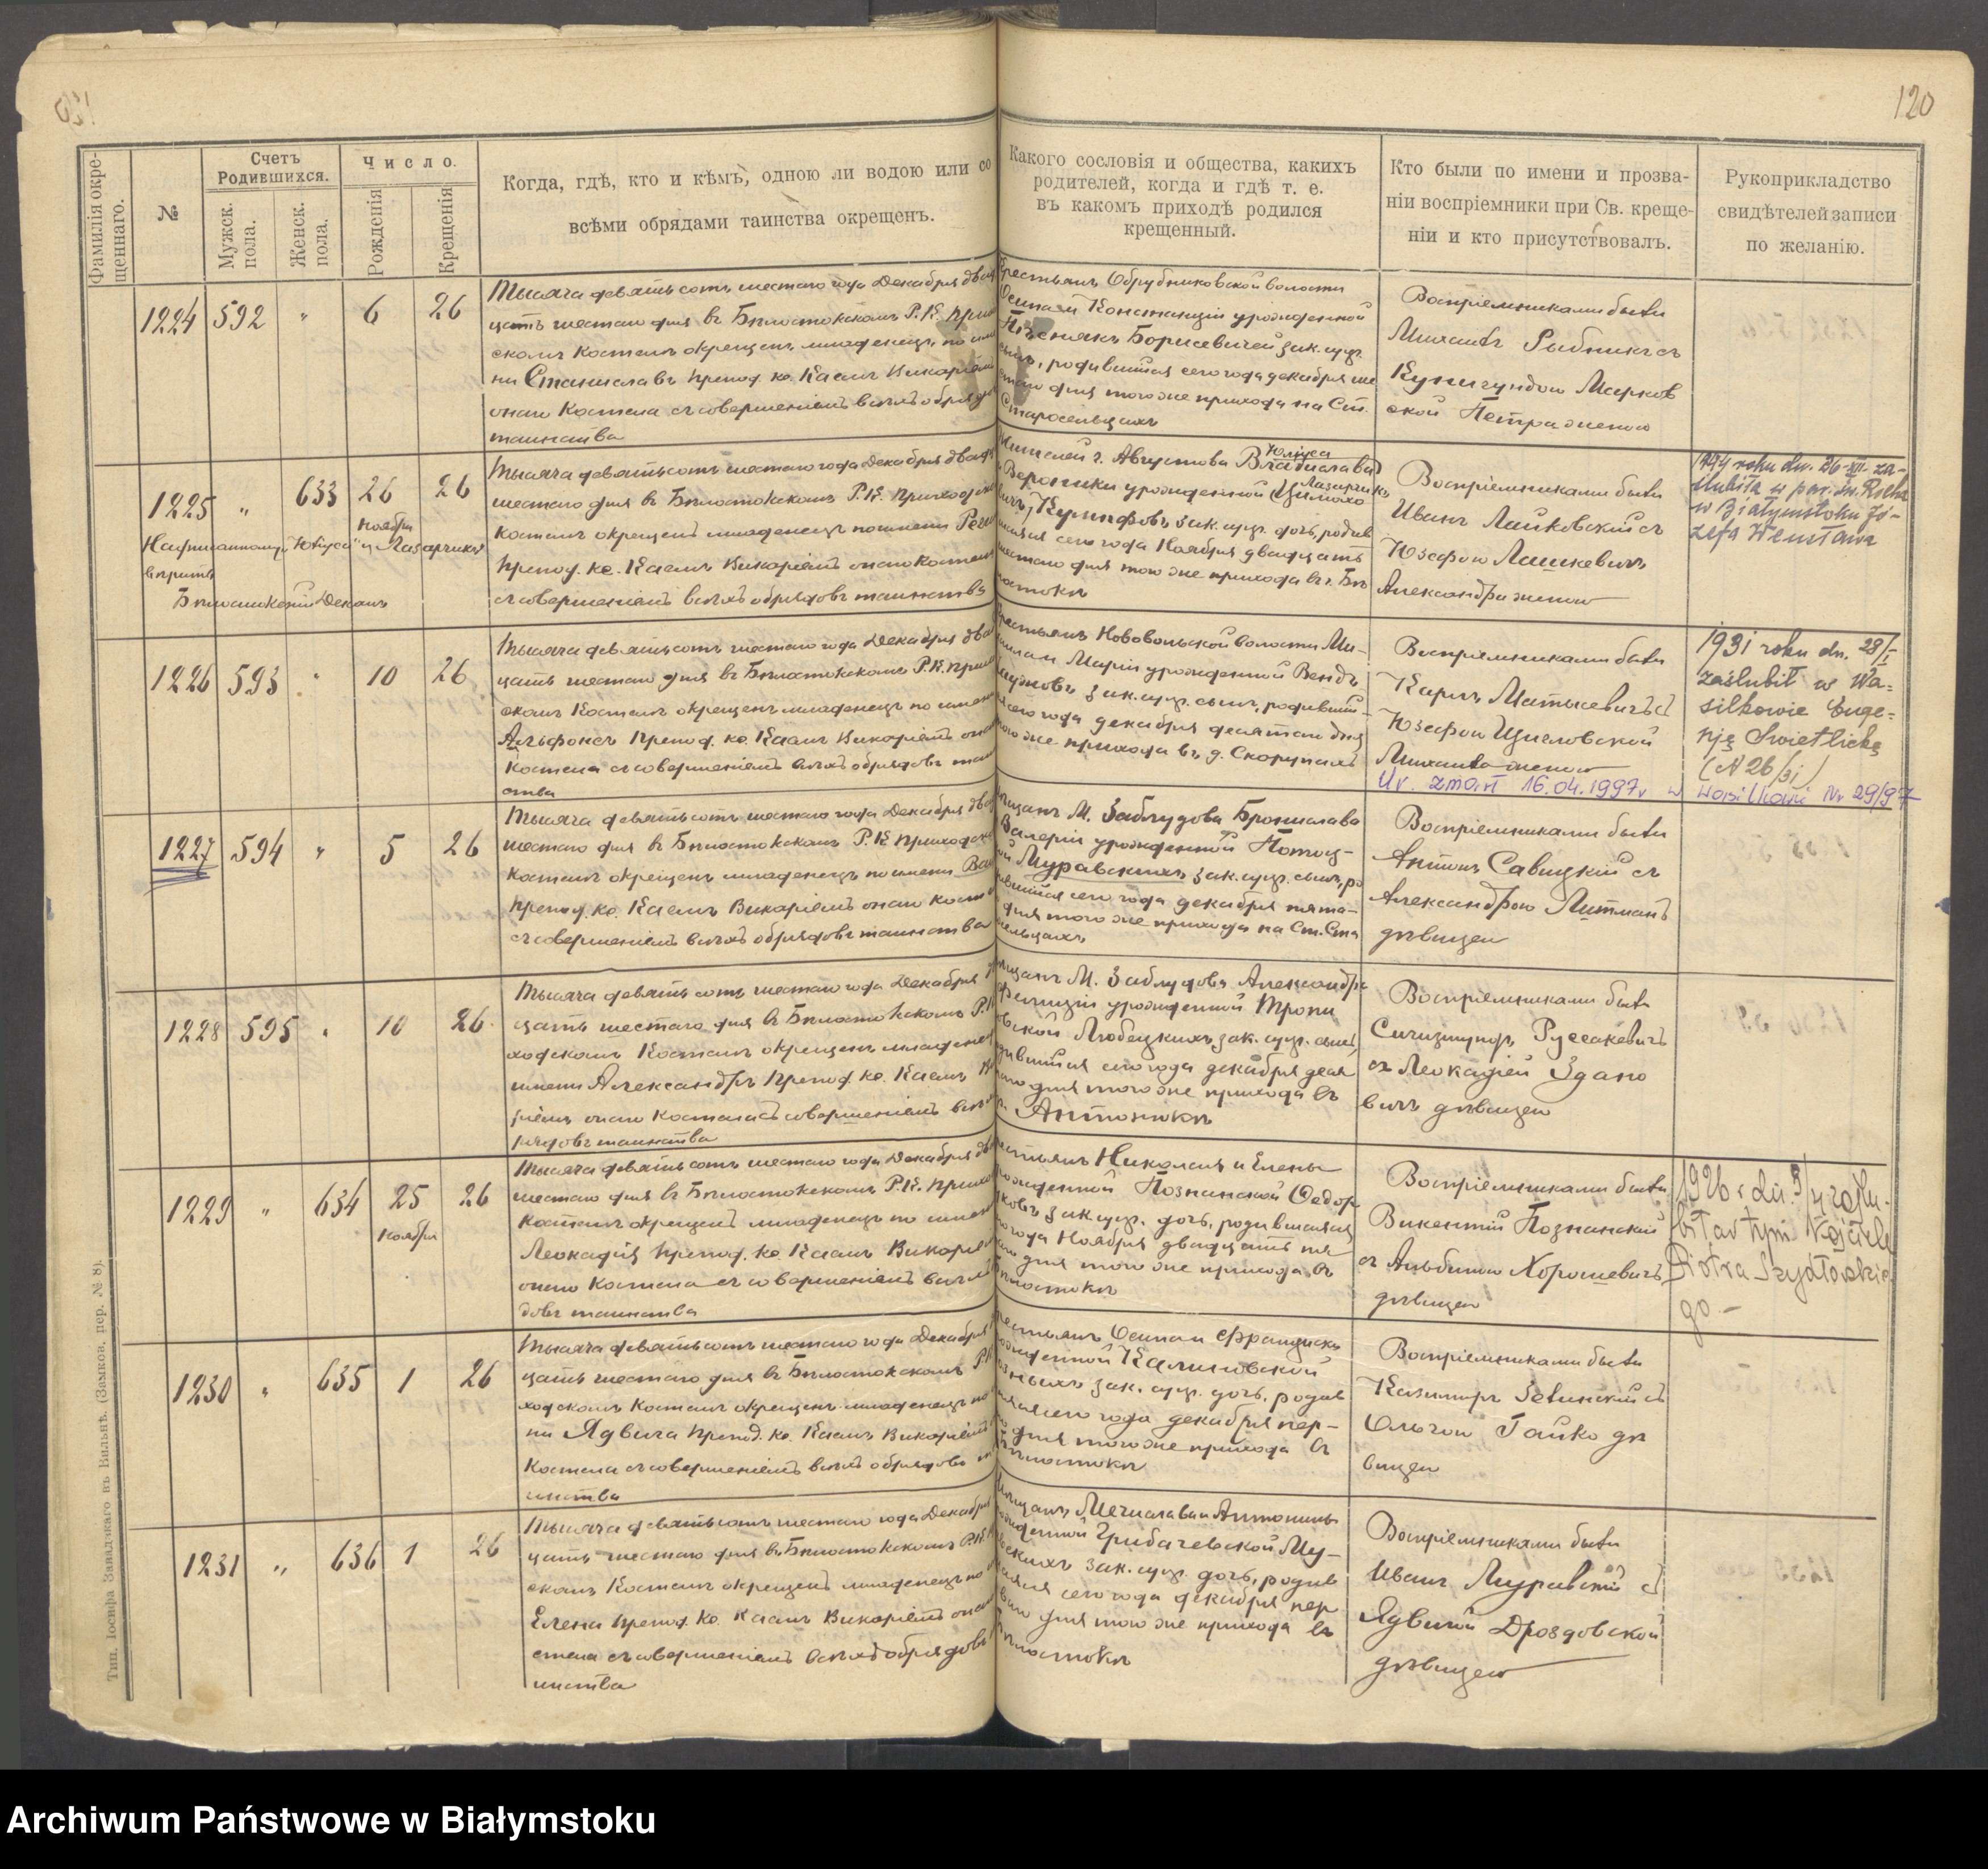 120
Фамилія окре-
щеннаго.
№
Счетъ
Родившихся.
Мужск.
пола.
Женск.
пола.
Число.
Рожденія
Крещенія
Когда, гдѣ, кто и кѣмъ, одною ли водою или со
всѣми обрядами таинства окрещенъ.
Какого сословія и общества, какихъ
родителей, когда и гдѣ т. е.
въ какомъ приходѣ родился
крещенный.
Кто были по имени и прозва-
ніи воспріемники при Св. креще-
ніи и кто присутствовалъ.
Рукоприкладство
свидѣтелей записи
по желанію.
1224 592 " 6 26
Тысяча девятьсотъ шестаго года Декабря двад
цать шестаго дня въ Бѣлостокскомъ Р.К. Прихо
скомъ Костелѣ окрещенъ младенецъ по име
ни Станиславъ препод. кс. Викаріемъ
онаго Костела съ совершеніемъ всѣхъ обрядо
таинства
Крестьянъ Обрубниковской волости
Осипа и Констанціи урожденной
Борисевичей зак. суп.
сынъ, родившійся сего года декабря ше
стаго дня того же прихода на Ст.
Старосельцахъ
Воспріемниками были
Михаилъ Рыбникъ съ
Кунигундою Марков
ской Петра женою
1225 " 633 26 26
Ноября
Надписанному "Юліуса" и "Лазарчикъ"
вѣрить
Бѣлостокскій Деканъ
Тысяча девятьсотъ шестаго года Декабря двадц
шестаго дня въ Бѣлостокскомъ Р.К. Приходско
Костелѣ окрещенъ младенецъ по имени Реги
препод. кс. Викаріемъ онаго Костела
съ совершеніемъ всѣхъ обрядовъ таинства
Юліуса
Жителей г. Августова Владислава
Лазарчикъ
и Вероники урожденной
зак. суп. дочь, родив
шаяся сего года Ноября двадцать
шестаго дня того же прихода въ г. Бѣ
лостокѣ
Воспріемниками были
Иванъ Лайковскій съ
Юзефою Лашкевичъ
Александра женою
1944 roku dn. 26-XII- za-
ślubiła w par. Św. Rocha
w Białymstoku Jó-
zefa
1226 593 " 10 26
Тысяча девятьсотъ шестаго года Декабря два
цать шестаго дня въ Бѣлостокскомъ Р.К. Прихо
скомъ Костелѣ окрещенъ младенецъ по имени
Альфонсъ препод. кс. Викаріемъ она
Костела съ совершеніемъ всѣхъ обрядовъ таин
ства
Крестьянъ Нововольской волости Ми-
хаила и Маріи урожденной
зак. суп. сынъ, родивш-
сего года декабря десятаго дня
того же прихода въ д. Скорупахъ
Воспріемниками были
Карлъ Матысевичъ съ
Юзефою
Михаила женою
1931 roku dn. 28/I
zaślubił w Wa-
silkowie Euge-
nję Swietlicką
(N 26/31)
Ur. zmarł 16.04.1997r w Wasilkowie Nr 29/97
1227 594 " 5 26
Тысяча девятьсотъ шестаго года Декабря двад
шестаго дня въ Бѣлостокскомъ Р.К. Приходско
Костелѣ окрещенъ младенецъ по имени
препод. кс. Викаріемъ онаго Косте
съ совершеніемъ всѣхъ обрядовъ таинства
Мѣщанъ М. Заблудова Бронислава
Валеріи урожденной Потоц-
кой Муравскихъ зак. суп. сынъ, ро
дившійся сего года декабря пята-
дня того же прихода на Ст. Ста
сельцахъ
Воспріемниками были
Антонъ Савицкій съ
Александрою Литманъ
дѣвицею
1228 595 " 10 26
Тысяча девятьсотъ шестаго года Декабря
цать шестаго дня въ Бѣлостокскомъ Р.К
ходскомъ Костелѣ окрещенъ младенец
имени Александръ препод. кс. Ви
ріемъ онаго Костела съ совершеніемъ всѣхъ
рядовъ таинства
Мѣщанъ М. Заблудова Александра
Фелиціи урожденной
Любецкихъ зак. суп. сынъ,
дившійся сего года декабря деся
таго дня того же прихода въ
Антонюкѣ
Воспріемниками были
Сигизмундъ Русакевичъ
съ Леокадіей Здано
вичъ дѣвицею
1229 " 634 25 26
ноября
Тысяча девятьсотъ шестаго года Декабря дв
шестаго дня въ Бѣлостокскомъ Р.К. Прихо
Костелѣ окрещенъ младенецъ по имени
Леокадія препод. кс. Викаріе
онаго Костела съ совершеніемъ всѣхъ
довъ таинства
Крестьянъ Николая и Елены
рожденной Познанской Федор
ковъ зак. суп. дочь, родившаяся
сего года Ноября двадцать пя
таго дня того же прихода въ
Бѣлостокѣ
Воспріемниками были
Викентій Познанскій
съ Альбиною Хорошевичъ
дѣвицею
1926 r. dn.
biła w tym Kościele
Piotra Szydłowskie
go -
1230 " 635 1 26
Тысяча девятьсотъ шестаго года Декабря
цать шестаго дня въ Бѣлостокскомъ Р.К
ходскомъ Костелѣ окрещенъ младенецъ по
ни Ядвига препод. кс. Викаріемъ
Костела съ совершеніемъ всѣхъ обрядовъ та
инства
Крестьянъ Осипа и Франциски
рожденной Калиновской
зак. суп. дочь, родив
шаяся сего года декабря пер-
дня того же прихода въ
Бѣлостокѣ
Воспріемниками были
Казимиръ Зелинскій съ
Ольгою Гайко дѣ
вицею
1231 " 636 1 26
Тысяча девятьсотъ шестаго года Декабря
цать шестаго дня въ Бѣлостокскомъ Р.К.
скомъ Костелѣ окрещенъ младенецъ по
Елена препод. кс. Викаріемъ она
стела съ совершеніемъ всѣхъ обрядовъ
инства
Мѣщанъ Мечислава и Антонины
рожденной Грибачевской Му-
зак. суп. дочь, родив
шаяся сего года декабря пер
ваго дня того же прихода въ
Бѣлостокѣ
Воспріемниками были
Иванъ Муравскій съ
Ядвигой Дроздовской
дѣвицею
Тип. Іосифа Завадзкаго въ Вильнѣ. (Замков. пер. № 8).
Archiwum Państwowe w Białymstoku